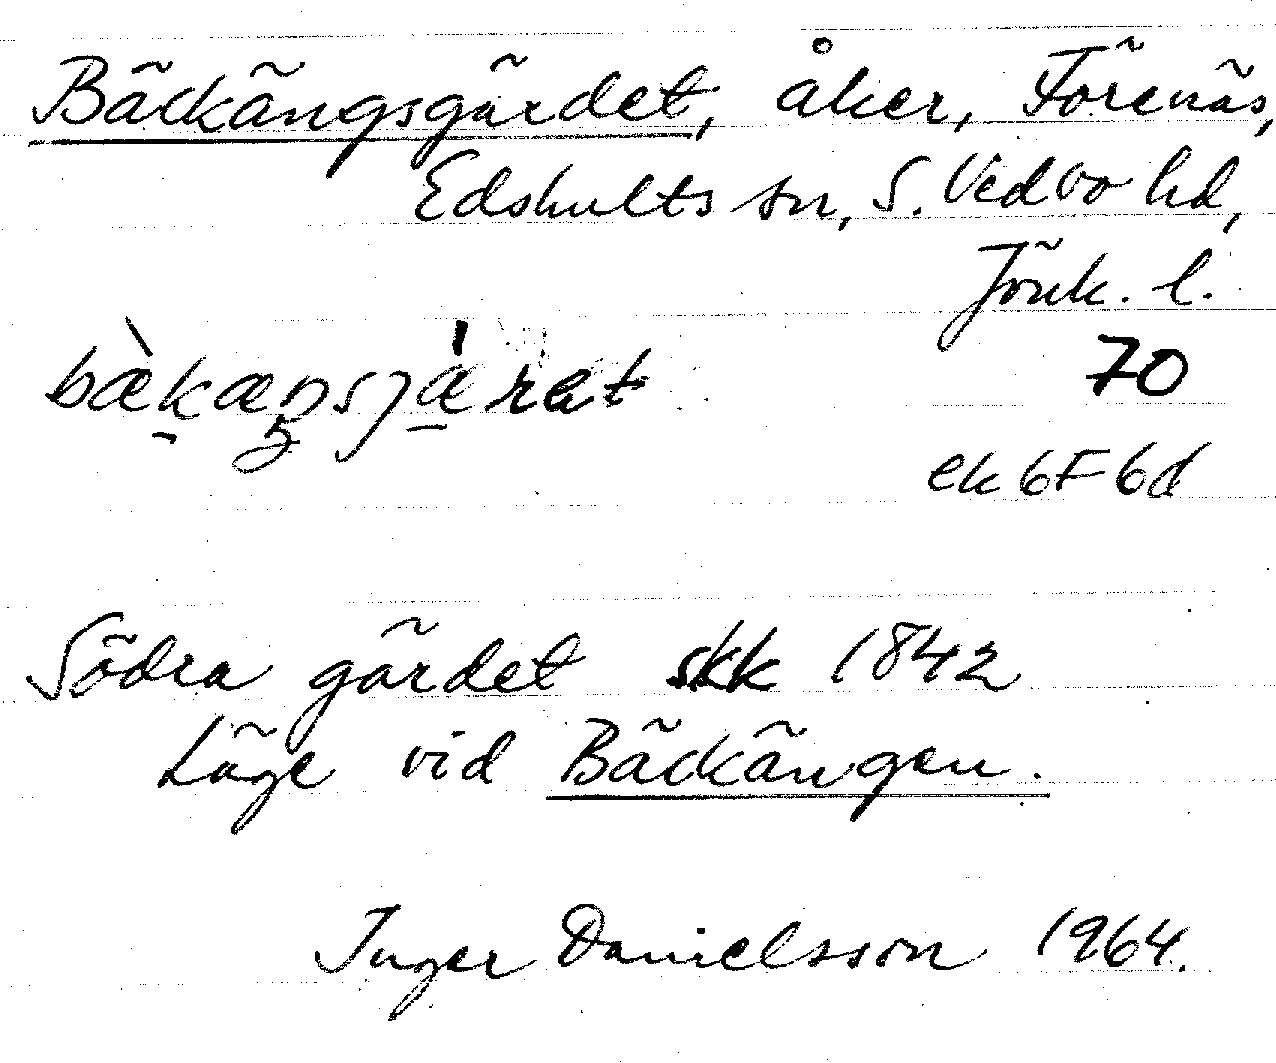 Bäckängsgärdet, åker, Förenäs,
Edshults sn, S. Vedbo hd,
Jönk. l.
bæ̀k̠æŋsjæ̠̍rat
70
ek 6F6d
Södra gärdet skk 1842
Läge vid Bäckängen.
Inger Danielsson 1964.